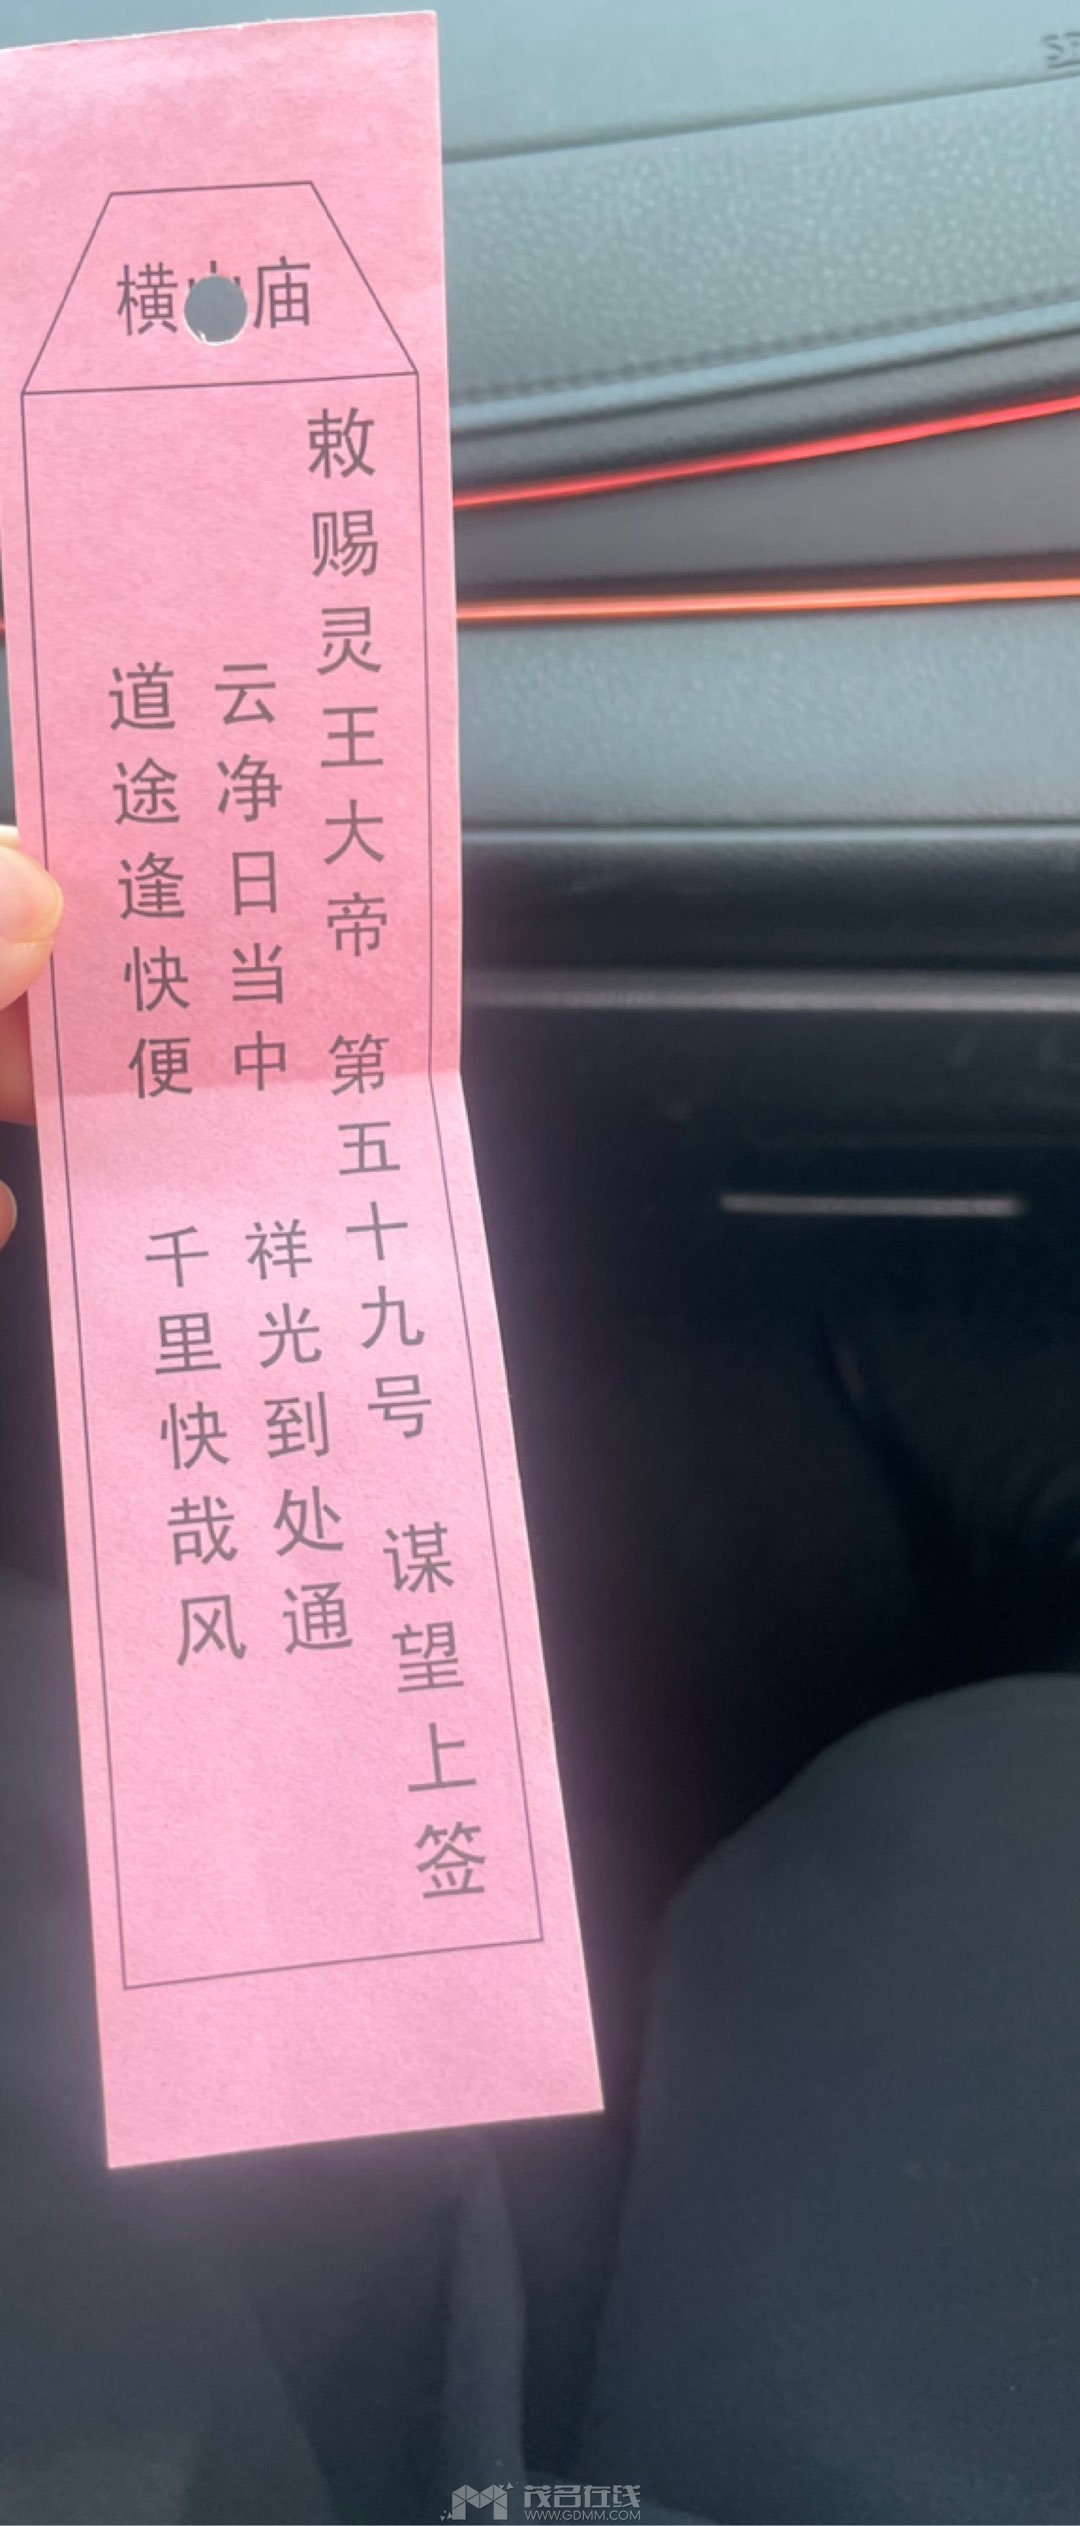 横山庙
敕赐灵王大帝 第五十九号 谋望上签
云净日当中 祥光到处通
道途逢快便 千里快哉风
茂名在线
WWW.GDMM.COM